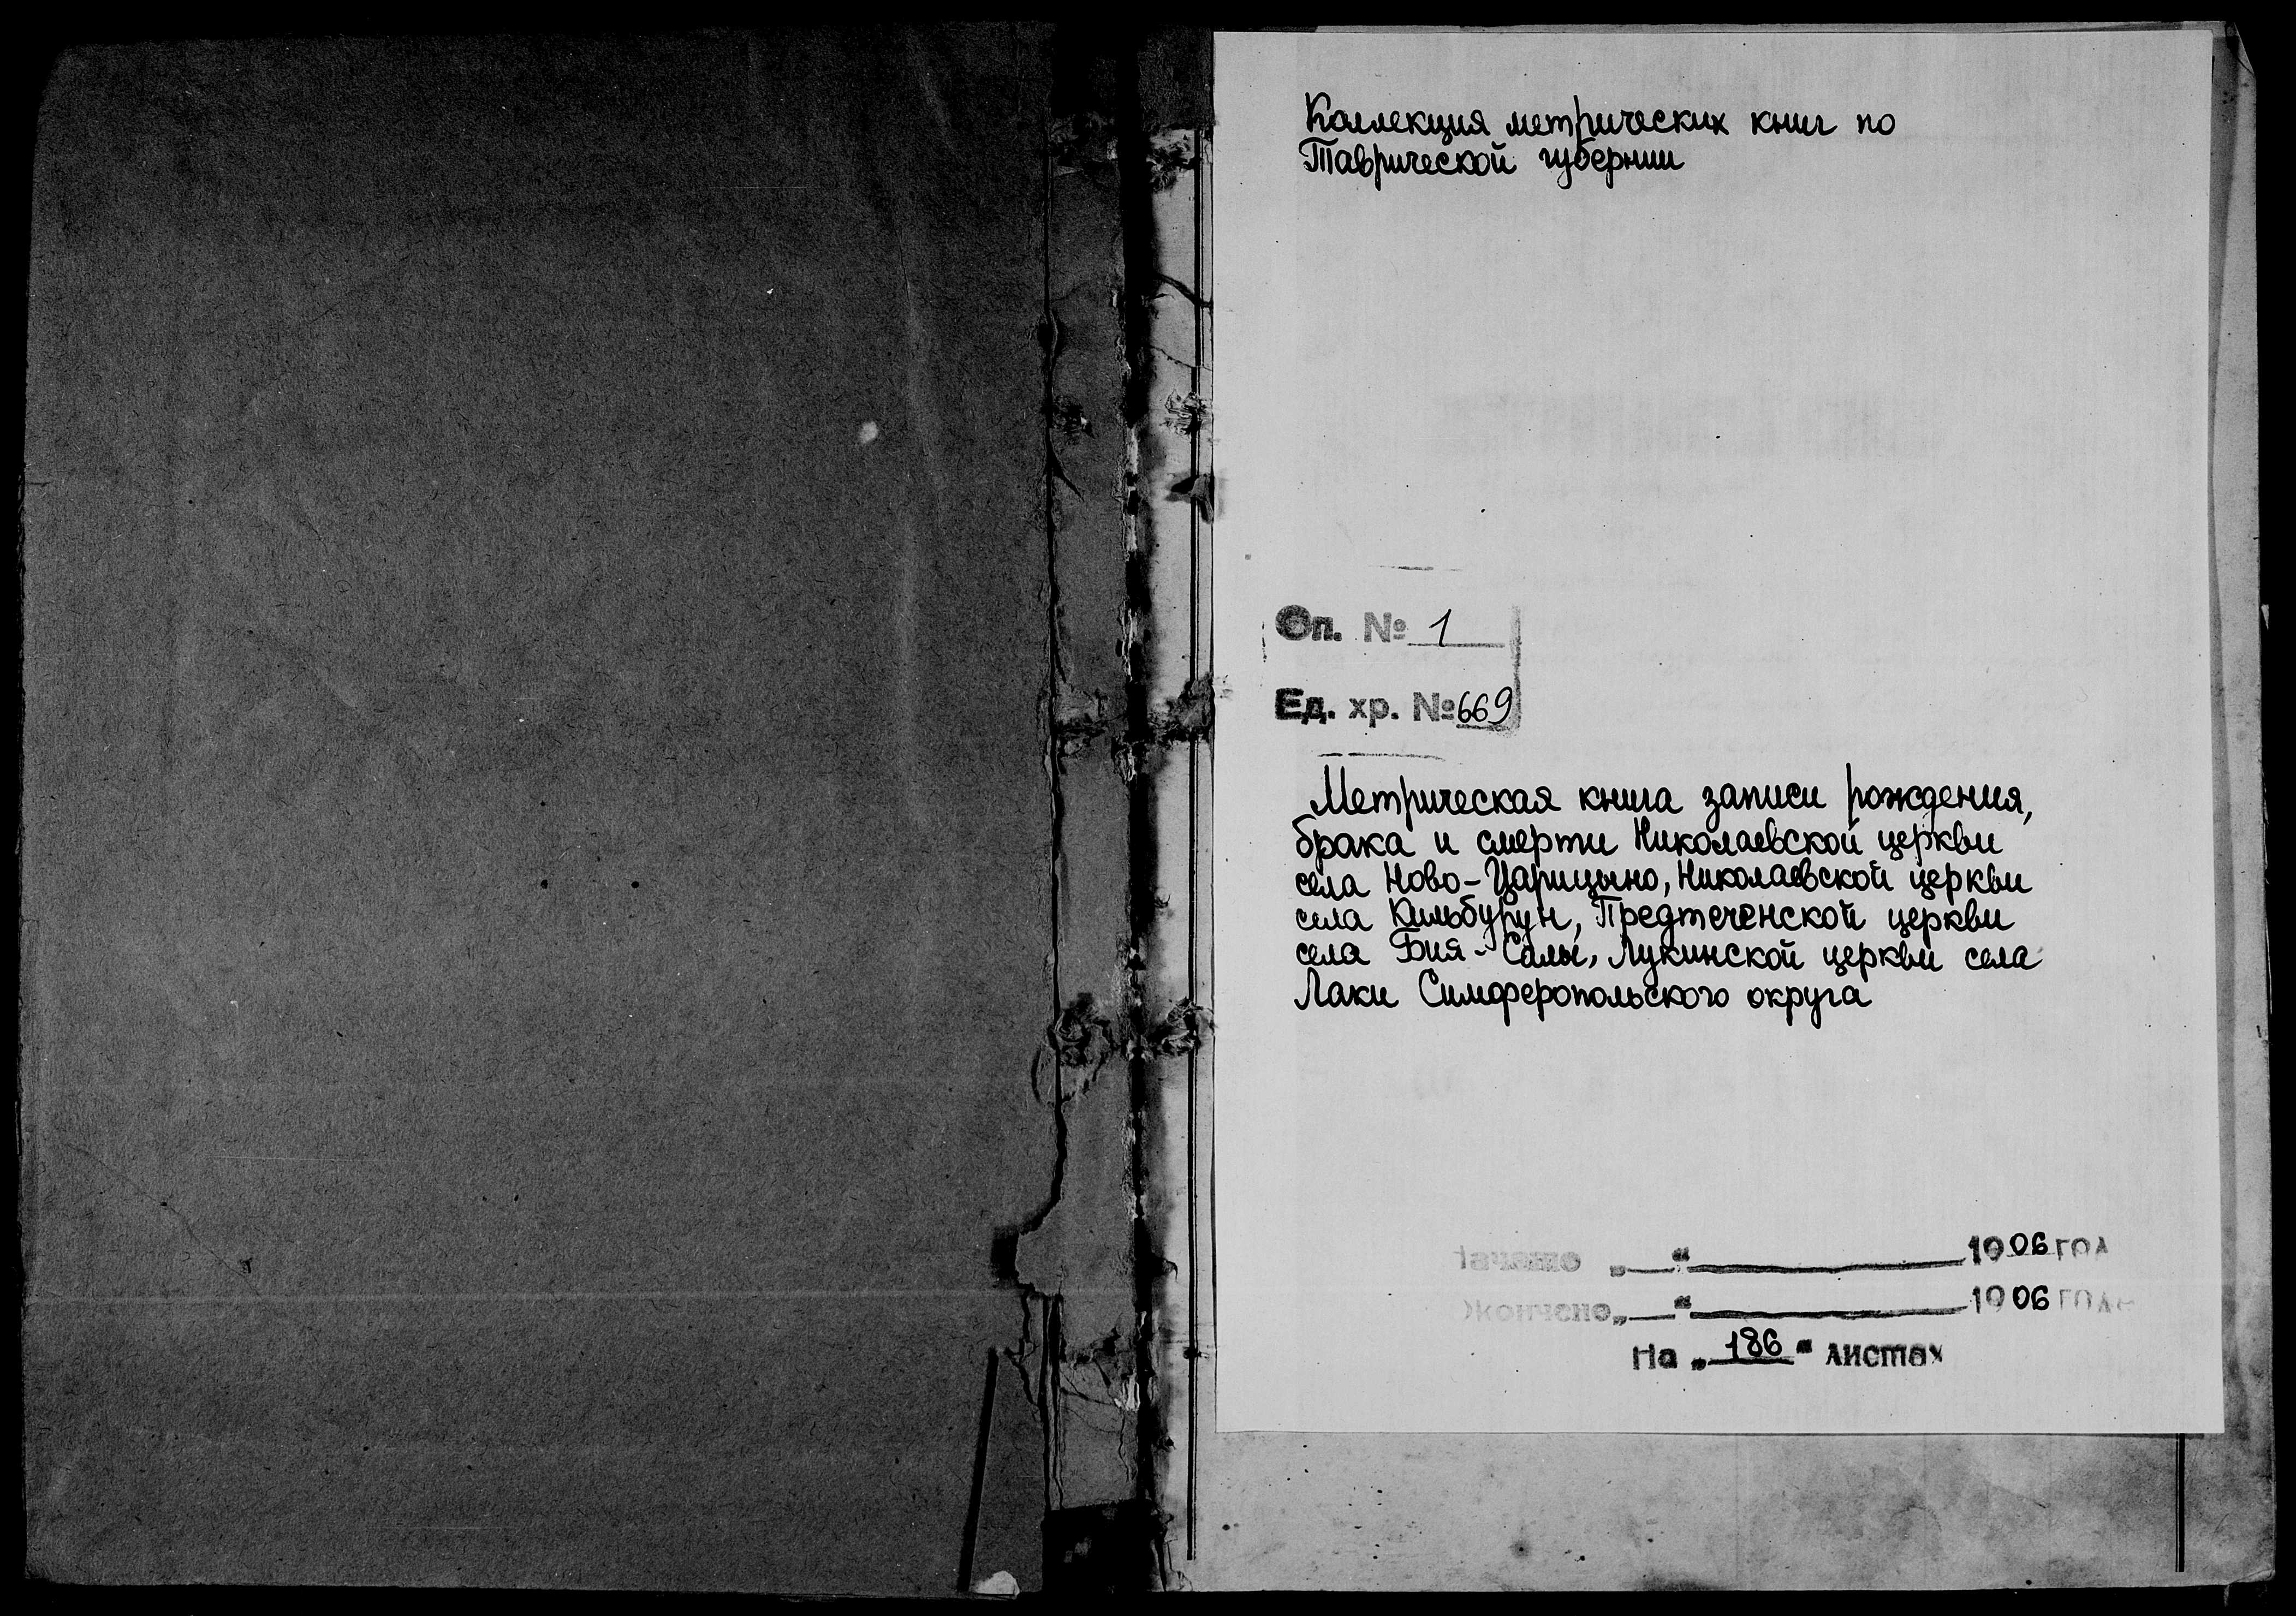 Коллекция метрических книг по
Таврической губернии
Оп. № 1
Ед. хр. № 669
Метрическая книга записи рождения,
брака и смерти Николаевской церкви
села Ново-Царицыно, Николаевской церкви
села Кильбурун, Предтеченской церкви
села Бия-Салы, Лукинской церкви села
Лаки Симферопольского округа
Начато „ “ 1906 год
Окончено „ “ 1906 года
На „ 186 “ листах